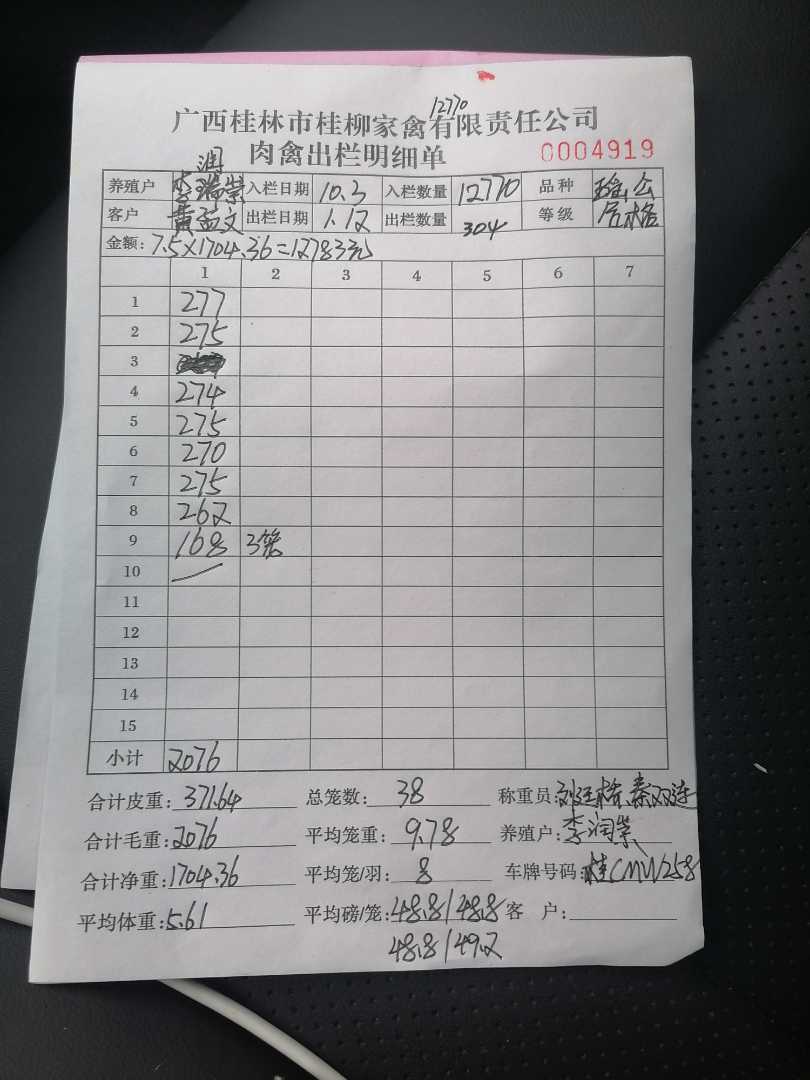 12770
广西桂林市桂柳家禽有限责任公司
肉禽出栏明细单
0004919
润
养殖户 李瑞崇 入栏日期 10.3 入栏数量 12770 品种 瑶公
客户 黄孟文 出栏日期 1.12 出栏数量 304 等级 合格
金额: 7.5×1704.36=12783元
1 2 3 4 5 6 7
1 277
2 275
3
4 274
5 275
6 270
7 275
8 262
9 168 3笼
10
11
12
13
14
15
小计 2076
合计皮重: 371.64 总笼数: 38 称重员: 秦双连
合计毛重: 2076 平均笼重: 9.78 养殖户: 李润崇
合计净重: 1704.36 平均笼/羽: 8 车牌号码: 桂CMW258
平均体重: 5.61 平均磅/笼: 48.8/48.8 客 户:
48.8/49.2